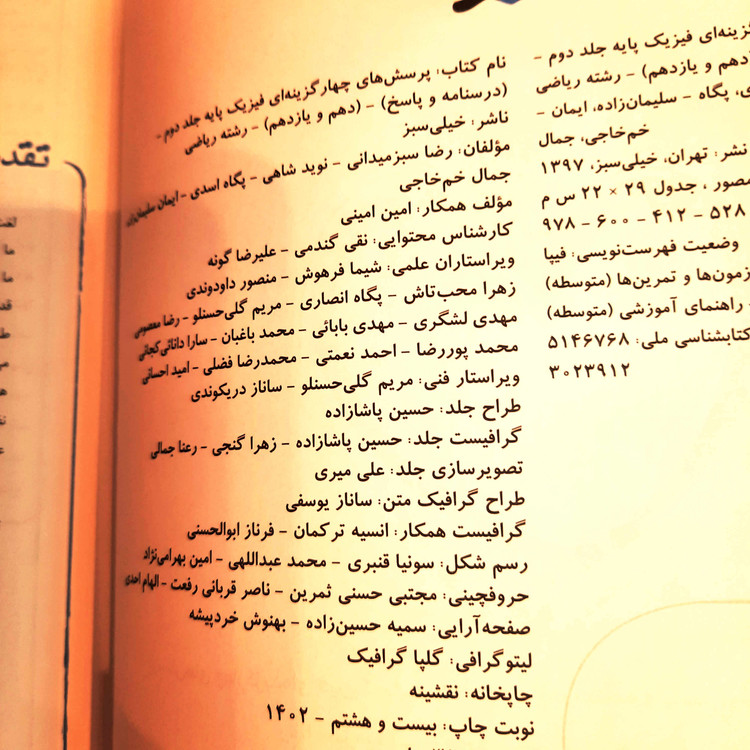 گزینه‌ای فیزیک پایه جلد دوم –
دهم و یازدهم) – رشته ریاضی
پگاه – سلیمان‌زاده، ایمان –
خم‌خاجی، جمال
نشر: تهران، خیلی‌سبز، ۱۳۹۷
مصور ، جدول ۲۹ × ۲۲ س م
۹۷۸ – ۶۰۰ – ۴۱۲ – ۵۲۸
وضعیت فهرست‌نویسی: فیپا
آزمون‌ها و تمرین‌ها (متوسطه)
راهنمای آموزشی (متوسطه)
کتابشناسی ملی: ۵۱۴۶۷۶۸
۳۰۲۳۹۱۲
نام کتاب: پرسش‌های چهارگزینه‌ای فیزیک پایه جلد دوم –
(درسنامه و پاسخ) – (دهم و یازدهم) – رشته ریاضی
ناشر: خیلی‌سبز
مؤلفان: رضا سبزمیدانی – نوید شاهی – پگاه اسدی – ایمان سلیمان‌زاده
جمال خم‌خاجی
مؤلف همکار: امین امینی
کارشناس محتوایی: نقی گندمی – علیرضا گونه
ویراستاران علمی: شیما فرهوش – منصور داودوندی
زهرا محب‌تاش – پگاه انصاری – مریم گلی‌حسنلو – رضا معصومی
مهدی لشگری – مهدی بابائی – محمد باغبان – سارا دانائی‌کجانی
محمد پوررضا – احمد نعمتی – محمدرضا فضلی – امید احسانی
ویراستار فنی: مریم گلی‌حسنلو – ساناز دریکوندی
طراح جلد: حسین پاشازاده
گرافیست جلد: حسین پاشازاده – زهرا گنجی – رعنا جمالی
تصویرسازی جلد: علی میری
طراح گرافیک متن: ساناز یوسفی
گرافیست همکار: انسیه ترکمان – فرناز ابوالحسنی
رسم شکل: سونیا قنبری – محمد عبداللهی – امین بهرامی‌نژاد
حروفچینی: مجتبی حسنی ثمرین – ناصر قربانی رفعت – الهام احدی
صفحه‌آرایی: سمیه حسین‌زاده – بهنوش خردپیشه
لیتوگرافی: گلپا گرافیک
چاپخانه: نقشینه
نوبت چاپ: بیست و هشتم – ۱۴۰۲